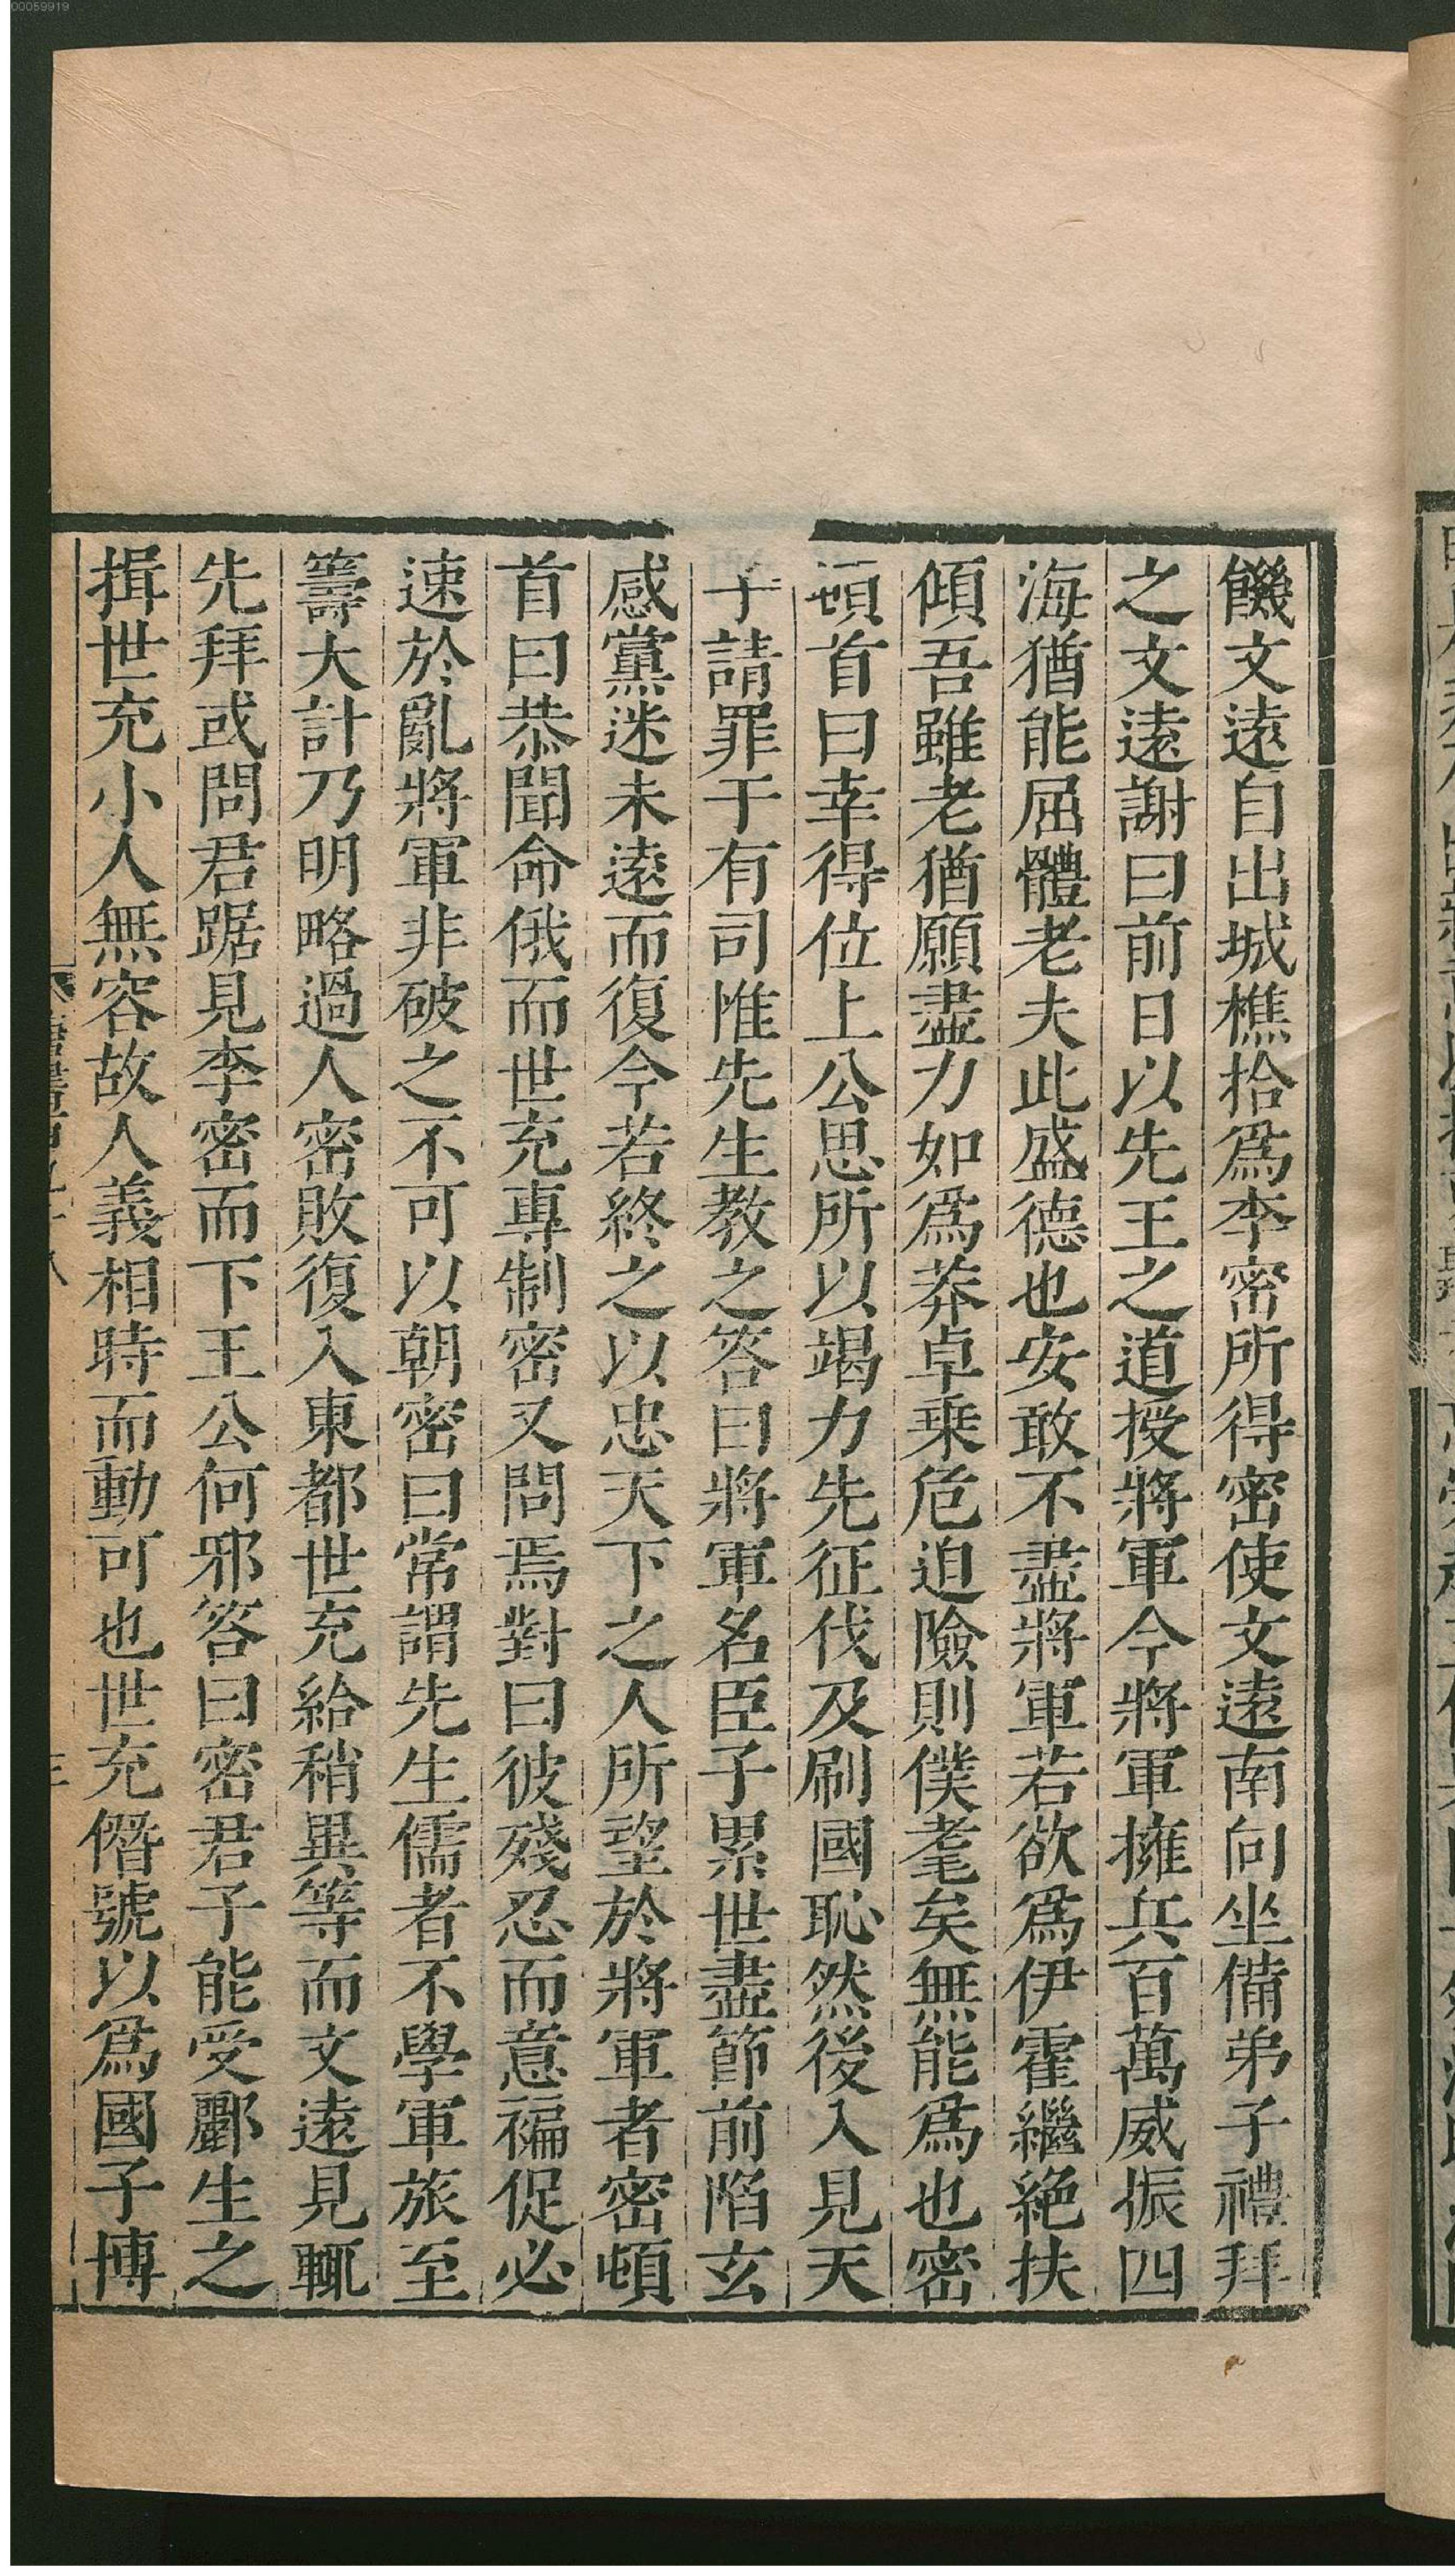 饑文遠自出城樵拾爲李密所得密使文遠南向坐備弟子禮拜
之文遠謝曰前日以先王之道授將軍今將軍擁兵百萬威振四
海猶能屈體老夫此盛德也安敢不盡將軍若欲爲伊霍繼絶扶
傾吾雖老猶願盡力如爲莽卓乗危迫險則僕耄矣無能爲也密
頓首曰幸得位上公思所以竭力先征伐及刷國恥然後入見天
子請罪于有司惟先生教之答曰將軍名臣子累世盡節前陷玄
感黨迷未遠而復今若終之以忠天下之人所望於將軍者密頓
首曰恭聞命俄而世充專制密又問焉對曰彼殘忍而意褊促必
速於亂將軍非破之不可以朝密曰常謂先生儒者不學軍旅至
籌大計乃明略過人密敗復入東都世充給稍異等而文遠見輒
先拜或問君踞見李密而下王公何邪答曰密君子能受酈生之
揖世充小人無容故人義相時而動可也世充僭號以爲國子博
00059919